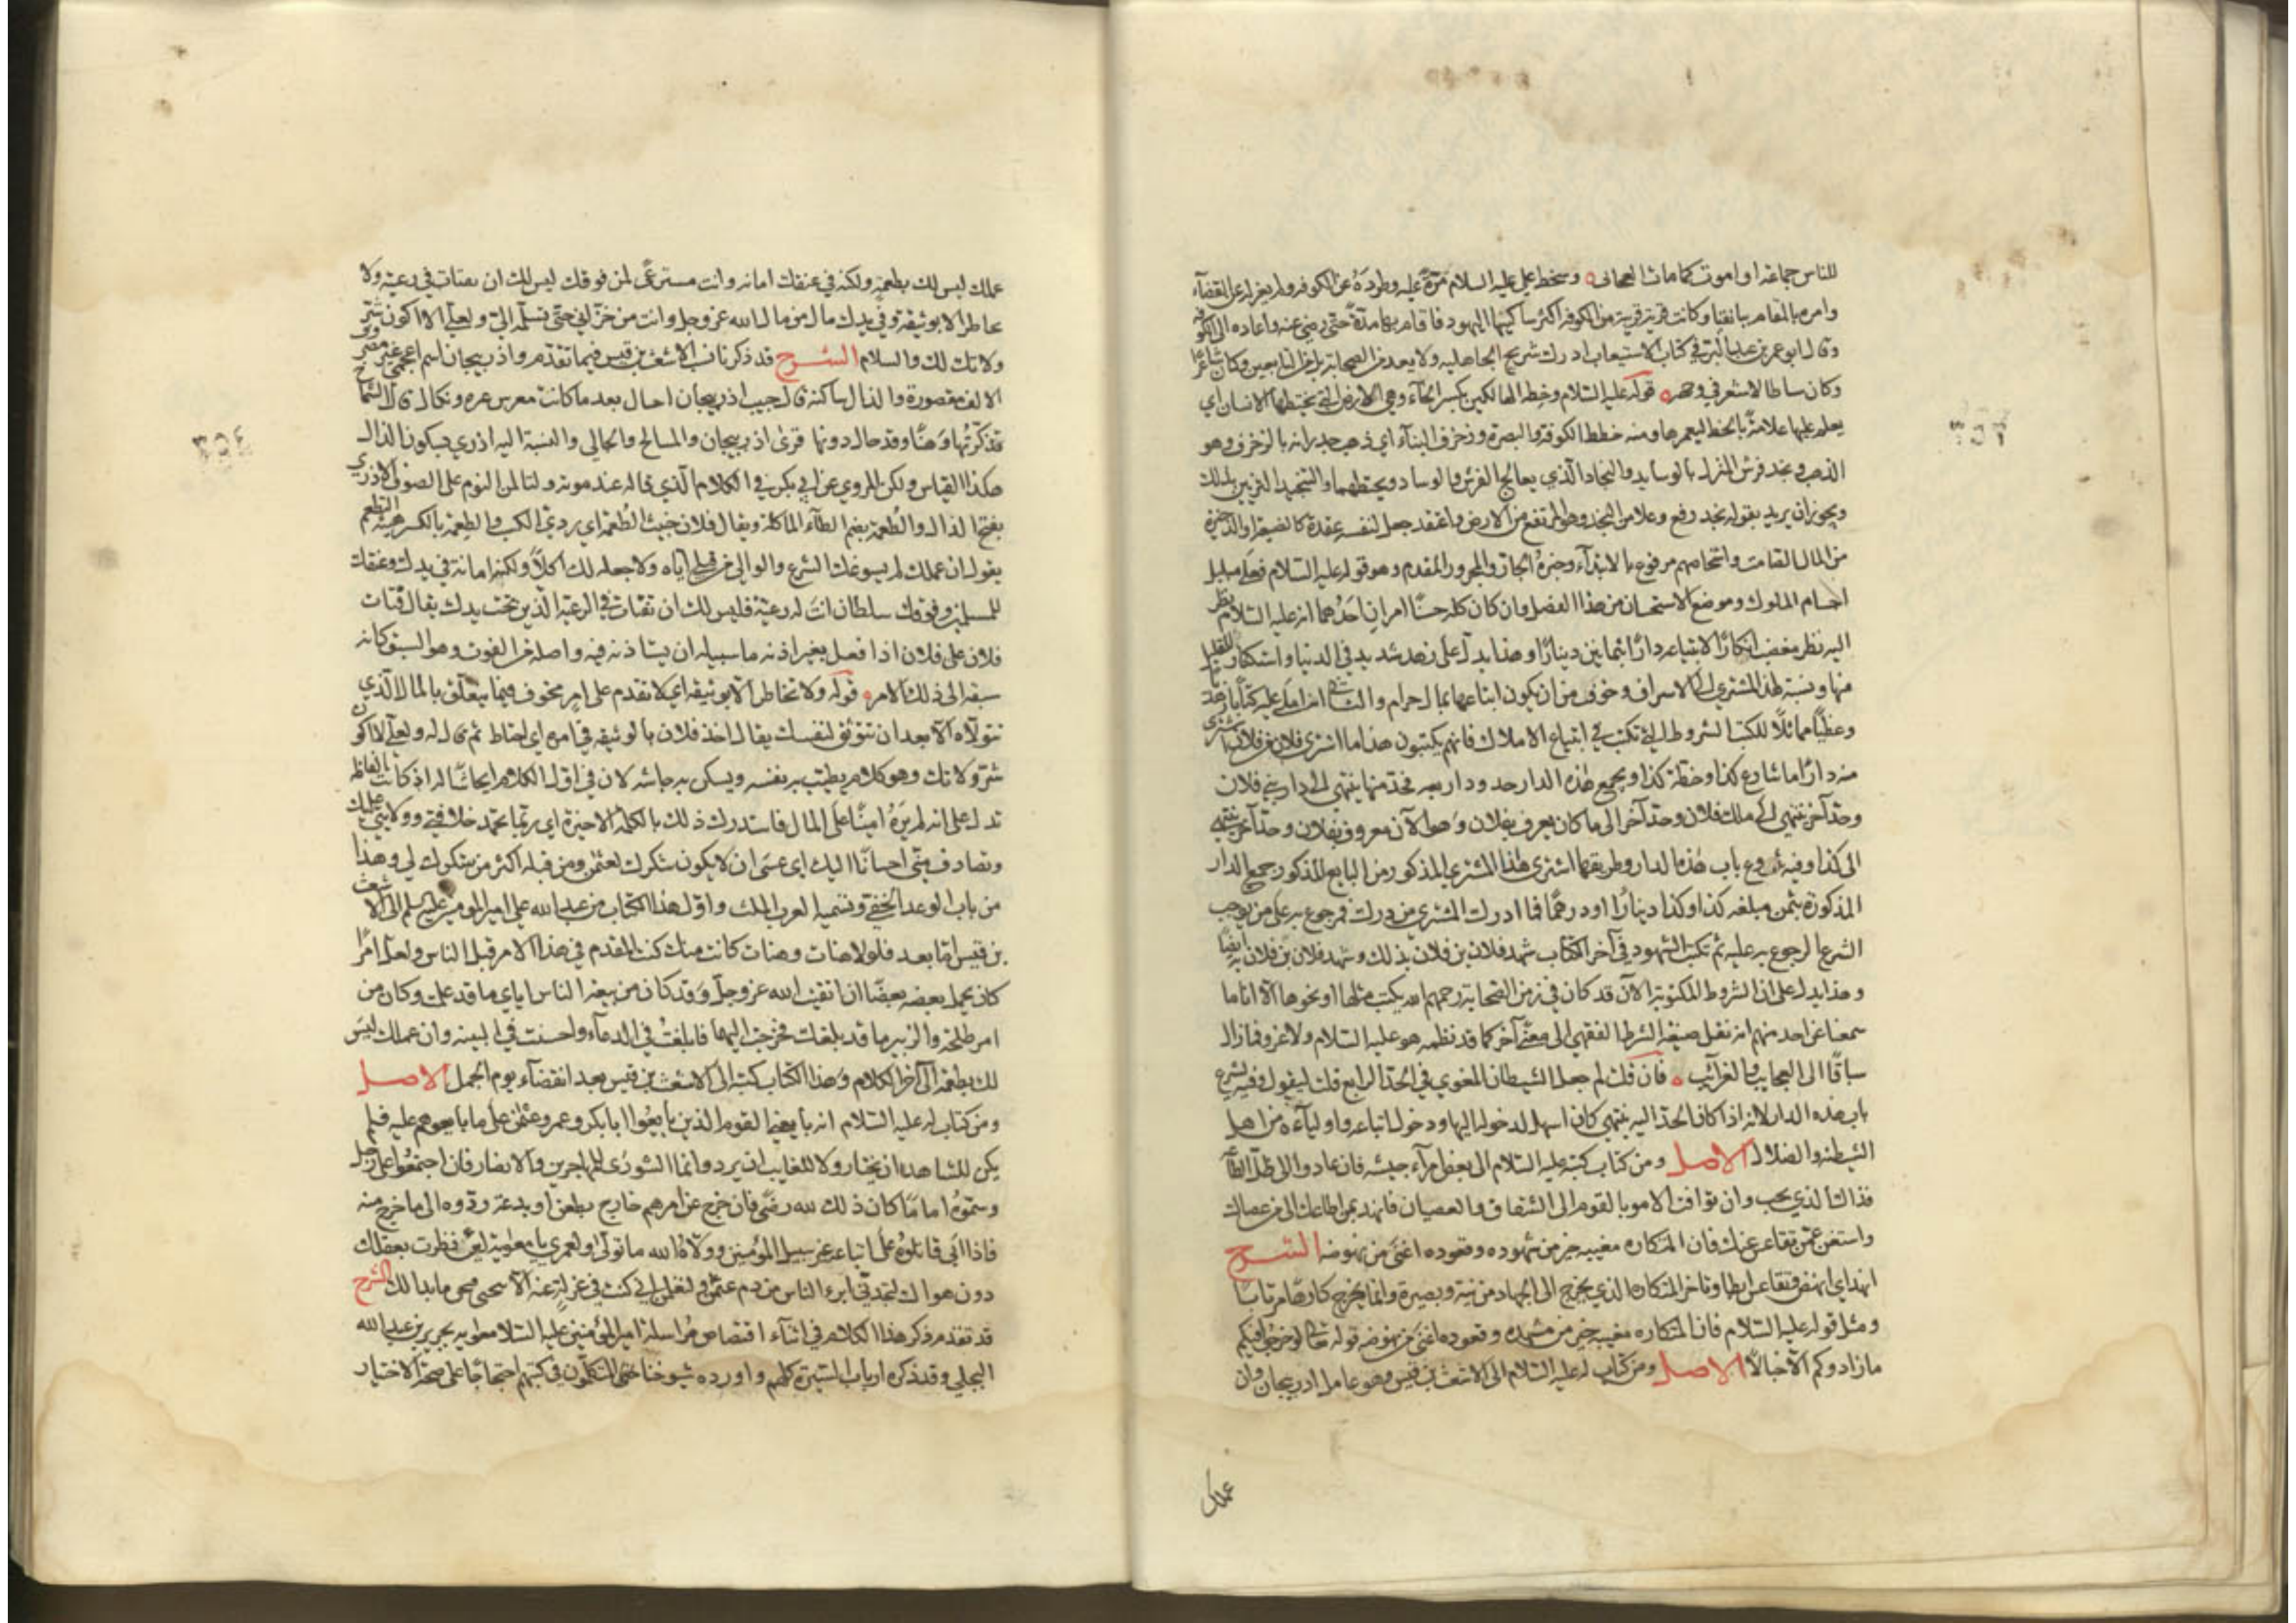 للناس جماعة او اموت كما مات اصحابى ه وسخط على عليه السلام مرة عليه وطرده عن الكوفة ولم يعزله عن القضآء
وامره بالمقام ببانقيا وكانت قرية قريبة من الكوفة اكثر ساكنيها اليهود فاقام بها مدة حتى رضي عنه واعاده الى الكوفة
وقال ابو عمر بن عبد البر في كتاب الاستيعاب ادرك شريح الجاهلية ولا يعد من الصحابة بل من التابعين وكان شاعرا
وكان سناطا لا شعر في وجهه ه قوله عليه السلام وخطة الهالكين بكسر الخآء وهي الارض التي يختطها الانسان اي
يعلم عليها علامة بالخط ليعمرها ومنه خطط الكوفة والبصرة وزخرف البنآء اي ذهب جدرانه بالزخرف وهو
الذهب ونجد فرش المنزل بالوسايد والنجاد الذي يعالج الفرش والوساد ويخيطهما والتنجيد التزيين بذلك
ويجوز ان يريد بقوله نجد رفع وعلا من النجد وهو المرتفع من الارض واعتقد جعل لنفسه عقدة كالضيعة او الذخيرة
من المال الصامت واشخاصهم مرفوع بالابتدآء وخبره الجار والمجرور المقدم وهو قوله عليه السلام فعلى مبلبل
اجسام الملوك وموضع الاستحسان من هذا الفصل وان كان كله حسنا امران احدهما انه عليه السلام نظر
اليه نظر مغضب انكارا لابتياعه دارا بثمانين دينارا وهذا يدل على زهد شديد في الدنيا واستكثار للقليل
منها ونسبة لهذا المشتري الى الاسراف وخوف من ان يكون ابتاعها بمال حرام والثاني انه املى عليه كتابا زهديا
وعظيا مماثلا للكتب الشروطية التي تكتب في ابتياع الاملاك فانهم يكتبون هذا ما اشترى فلان من فلان اشترى
منه دارا ما شارع كذا وخطة كذا ويجمع هذه الدار حدود اربعة فحد منها ينتهي الى دار بني فلان
وحد آخر ينتهي الى ملك فلان وحد آخر الى ما كان يعرف بفلان وهو الآن معروف بفلان وحد آخر ينتهي
الى كذا وفيه شروع باب هذه الدار وطريقها اشترى هذا المشتري المذكور من البايع المذكور جميع الدار
المذكورة بثمن مبلغه كذا وكذا دينارا او درهما فما ادرك المشتري من درك فمرجوع به على من يوجب
الشرع الرجوع به عليه ثم تكتب الشهود في آخر الكتاب شهد فلان بن فلان بذلك وشهد فلان بن فلان به ايضا
وهذا يدل على ان الشروط المكتوبة الآن قد كان في زمن الصحابة رحمهم الله يكتب مثلها او نحوها الا انا ما
سمعنا عن احد منهم انه نقل صيغة الشرط الفقهي الى معنى آخر كما قد نظمه هو عليه السلام ولا غرو فما زال
سباقا الى العجايب والغرآئب ه فان قلت لم جعل الشيطان المغوي في الحد الرابع قلت ليقول وفيه يشرع
باب هذه الدار لانه اذا كان الحد اليه ينتهي كان اسهل لدخوله اليها ودخول اتباعه واوليآءه من اهل
الشيطنة والضلال الاصل ومن كتاب كتبه عليه السلام الى بعض امرآء جيشه فان عادوا الى ظل الطاعة
فذاك الذي نحب وان توافت الامور بالقوم الى الشقاق والعصيان فانهد بمن اطاعك الى من عصاك
واستغن عمن تقاعس عنك فان المتكاره مغيبه خير من شهوده وقعوده اغنى من نهوضه الشرح
انهد اي انهض وتقاعس ابطا وتاخر المتكاره الذي يخرج الى الجهاد من نية وبصيرة وانما يخرج كارها مرتابا
ومثل قوله عليه السلام فان المتكاره مغيبه خير من مشهده وقعوده اغنى من نهوضه قوله تعالى لو خرجوا فيكم
ما زادوكم الا خبالا الاصل ومن كتاب له عليه السلام الى الاشعث بن قيس وهو عامل اذربيجان وان
عملك
عملك ليس لك بطعمة ولكنه في عنقك امانة وانت مسترعى لمن فوقك ليس لك ان تفتات في رعية ولا
تخاطر الا بوثيقة وفي يديك مال من مال الله عز وجل وانت من خزاني حتى تسلمه الي ولعلي الا اكون شر
ولاتك لك والسلام الشرح قد ذكرنا نسب الاشعث بن قيس فيما تقدم واذربيجان اسم اعجمي غير مصروف
الالف مقصورة والذال ساكنة قال حبيب اذربيجان احتيال بعد ما كانت معرس عبرة ونكال قال الشماخ
تذكرتها وهنا وقد حال دونها قرى اذربيجان والمسالح والجالي والنسبة اليه اذري بسكون الذال
هكذا القياس ولكن المروي عن ابي بكر في الكلام الذي قاله عند موته ولتالمن النوم على الصوف الاذري
بفتح الذال والطعمة بضم الطآء الماكلة ويقال فلان خبيث الطعمة اي ردي الكسب والطعمة بالكسر هيئة التطعم
يقول ان عملك لم يسوغك الشرع والوالي من قبلي اياه ولا جعله لك اكلا ولكنه امانة في يدك وعنقك
للمسلمين وفوقك سلطان انت له رعية فليس لك ان تفتات في الرعية الذين تحت يدك يقال افتات
فلان على فلان اذا فعل بغير اذنه ما سبيله ان يستاذنه فيه واصله من الفوت وهو السبق كانه
سبقه الى ذلك الامر ه قوله ولا تخاطر الا بوثيقة اي لا تقدم على امر مخوف فيما يتعلق بالمال الذي
تتولاه الا بعد ان تتوثق لنفسك يقال اخذ فلان بالوثيقة في امره اي احتاط ثم قال له ولعلي لا اكون
شر ولاتك وهو كلام يطيب به نفسه ويسكن به جاشه لان في اول الكلام ايحاشا له اذ كانت الفاظه
تدل على انه لم يره امينا على المال فاستدرك ذلك بالكلمة الاخيرة اي ربما تحمد خلافتي وولايتي عليك
وتصادف مني احسانا اليك اي عسى ان لا يكون شكرك لعثمن ومن قبله اكثر من شكرك لي وهذا
من باب الوعد الخفي وتسميه العرب الملث واول هذا الكتاب من عبد الله علي امير المومنين عليه السلم الى الاشعث
بن قيس اما بعد فلولا هنات وهنات كانت منك كنت المقدم في هذا الامر قبل الناس ولعل امرا
كان يحمل بعضه بعضا ان اتقيت الله عز وجل وقد كان من بيعة الناس اياي ما قد علمت وكان من
امر طلحة والزبير ما قد بلغك فخرجت اليهما فابلغت في الدعآء واحسنت في البينة وان عملك ليس
لك بطعمة الى آخر الكلام وهذا الكتاب كتبه الى الاشعث بن قيس بعد انقضآء يوم الجمل الاصل
ومن كتاب له عليه السلام انه بايعني القوم الذين بايعوا ابا بكر وعمر وعثمن على ما بايعوهم عليه فلم
يكن للشاهد ان يختار ولا للغايب ان يرد وانما الشورى للمهاجرين والانصار فان اجتمعوا على رجل
وسموه اماما كان ذلك لله رضى فان خرج عن امرهم خارج بطعن او بدعة ردوه الى ما خرج منه
فاذا ابى قاتلوه على اتباعه غير سبيل المؤمنين وولاه الله ما تولى ولعمري يا معوية لئن نظرت بعقلك
دون هواك لتجدني ابرء الناس من دم عثمن ولتعلمن اني كنت في عزلة عنه الا ما بدا لك الشرح
قد تقدم ذكر هذا الكلام في اثنآء اقتصاص مراسلة امير المؤمنين عليه السلام معوية بجرير بن عبد الله
البجلي وقد ذكره ارباب السيرة كلهم واورده شيوخنا المتكلمون في كتبهم احتجاجا على صحة الاختيار